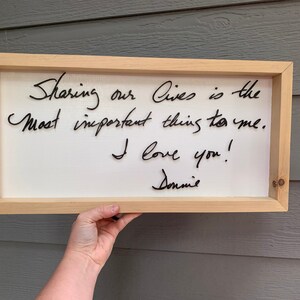 Sharing our lives is the
most important thing to me.
I love you!
Donnie